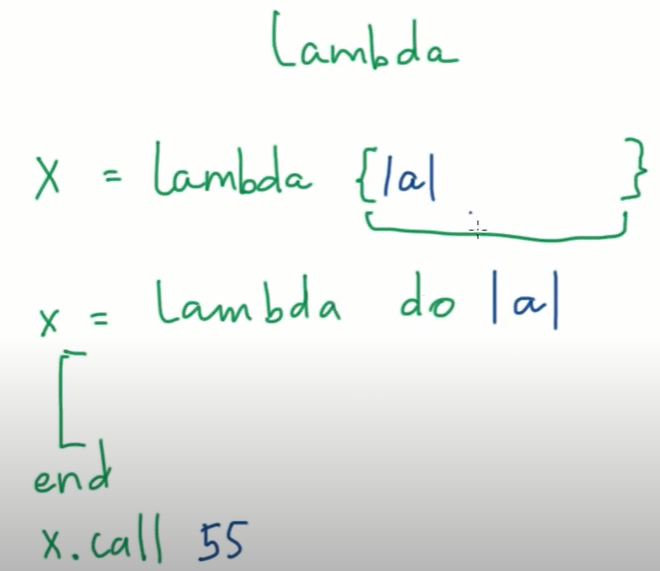 Lambda
X = lambda {|a| }
x = lambda do |a|
end
x.call 55